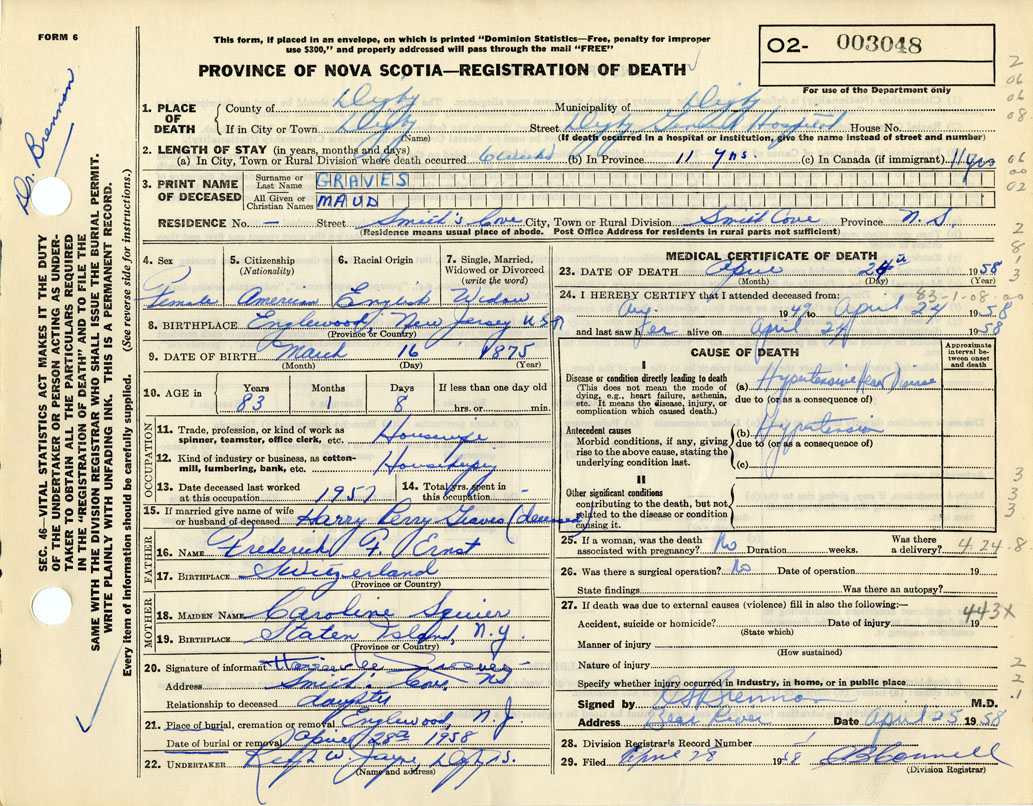 FORM 6
This form, if placed in an envelope, on which is printed "Dominion Statistics—Free, penalty for improper
use $300," and properly addressed will pass through the mail "FREE"
PROVINCE OF NOVA SCOTIA—REGISTRATION OF DEATH
O2- 003048
For use of the Department only
Dr. Brennan
SEC. 46—VITAL STATISTICS ACT MAKES IT THE DUTY
OF THE UNDERTAKER OR PERSON ACTING AS UNDER-
TAKER TO OBTAIN ALL THE PARTICULARS REQUIRED
IN THE "REGISTRATION OF DEATH" AND TO FILE THE
SAME WITH THE DIVISION REGISTRAR WHO SHALL ISSUE THE BURIAL PERMIT.
WRITE PLAINLY WITH UNFADING INK. THIS IS A PERMANENT RECORD.
Every item of information should be carefully supplied. (See reverse side for instructions.)
1. PLACE OF DEATH
County of Digby Municipality of Digby
If in City or Town Digby Street Digby General Hospital House No.
(Name) (If death occurred in a hospital or institution, give the name instead of street and number)
2. LENGTH OF STAY (in years, months and days)
(a) In City, Town or Rural Division where death occurred 6 weeks (b) In Province 11 yrs. (c) In Canada (if immigrant) 11 yrs
3. PRINT NAME OF DECEASED
Surname or Last Name GRAVES
All Given or Christian Names MAUD
RESIDENCE No. — Street Smith's Cove City, Town or Rural Division Smith Cove Province N.S.
(Residence means usual place of abode. Post Office Address for residents in rural parts not sufficient)
4. Sex Female
5. Citizenship (Nationality) American
6. Racial Origin English
7. Single, Married, Widowed or Divorced (write the word) Widow
8. BIRTHPLACE Englewood, New Jersey USA
(Province or Country)
9. DATE OF BIRTH March 16 1875
(Month) (Day) (Year)
10. AGE in Years 83 Months 1 Days 8 If less than one day old hrs. or min.
OCCUPATION
11. Trade, profession, or kind of work as spinner, teamster, office clerk, etc. Housewife
12. Kind of industry or business, as cotton-mill, lumbering, bank, etc. Housekeeping
13. Date deceased last worked at this occupation 1957 14. Total yrs. spent in this occupation
15. If married give name of wife or husband of deceased Harry Perry Graves (deceased)
FATHER
16. NAME Frederick F. Ernst
17. BIRTHPLACE Switzerland
(Province or Country)
MOTHER
18. MAIDEN NAME Caroline Squier
19. BIRTHPLACE Staten Island, N.Y.
(Province or Country)
20. Signature of informant
Address Smith's Cove, NS
Relationship to deceased daughter
21. Place of burial, cremation or removal Englewood N.J
Date of burial or removal April 28th 1958
22. UNDERTAKER W. Jayne, Digby N.S.
(Name and address)
MEDICAL CERTIFICATE OF DEATH
23. DATE OF DEATH April 24th 1958
(Month) (Day) (Year)
83-1-08-00
24. I HEREBY CERTIFY that I attended deceased from:
Aug. 1949 to April 24 1958
and last saw her alive on April 24 1958
CAUSE OF DEATH
Approximate interval between onset and death
I
Disease or condition directly leading to death
(This does not mean the mode of dying, e.g., heart failure, asthenia, etc. It means the disease, injury, or complication which caused death.)
(a) Hypertensive Heart Disease
due to (or as a consequence of)
Antecedent causes
Morbid conditions, if any, giving rise to the above cause, stating the underlying condition last.
(b) Hypertension
due to (or as a consequence of)
(c)
II
Other significant conditions
contributing to the death, but not related to the disease or condition causing it.
25. If a woman, was the death associated with pregnancy? No Duration weeks. Was there a delivery? 4-24-8
26. Was there a surgical operation? No Date of operation 19
State findings Was there an autopsy?
27. If death was due to external causes (violence) fill in also the following:—
443X
Accident, suicide or homicide? Date of injury 19
(State which)
Manner of injury
(How sustained)
Nature of injury
Specify whether injury occurred in industry, in home, or in public place
Signed by Brennan M.D.
Address Bear River Date April 25 1958
28. Division Registrar's Record Number
29. Filed April 28 1958
(Division Registrar)
2
06
06
08
06
00
02
2
8
1
3
3
3
3
2
2
1